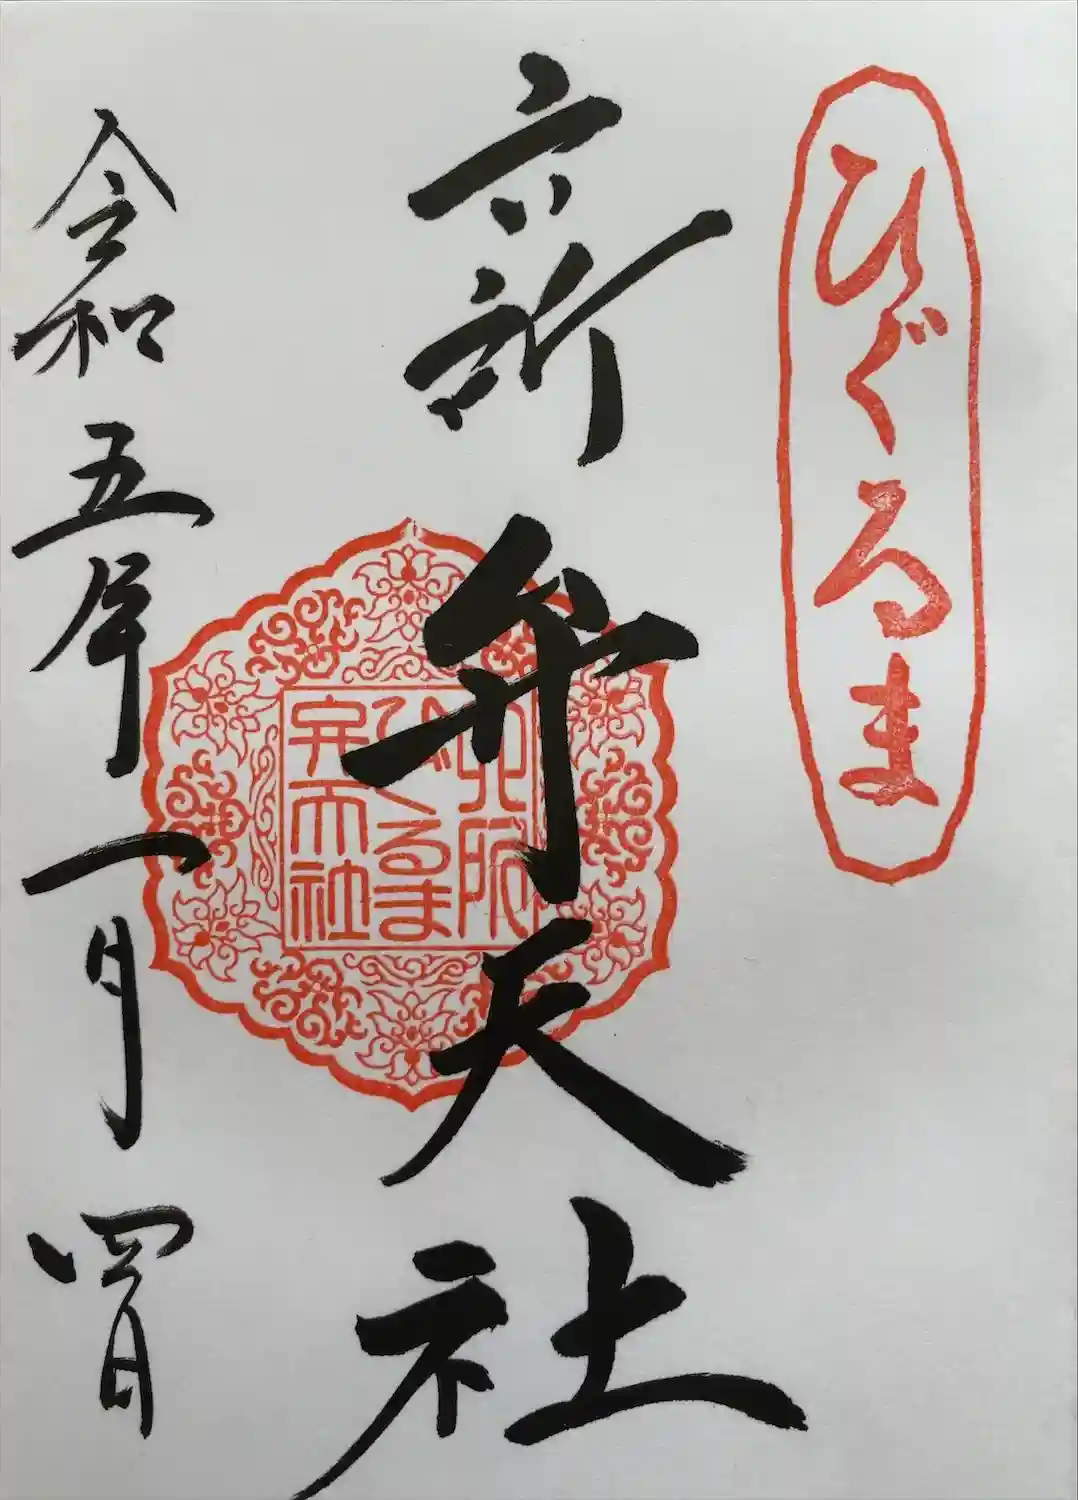 ひぐるま
六所
弁天社
ひぐるま
弁天社
令和五年一月四日